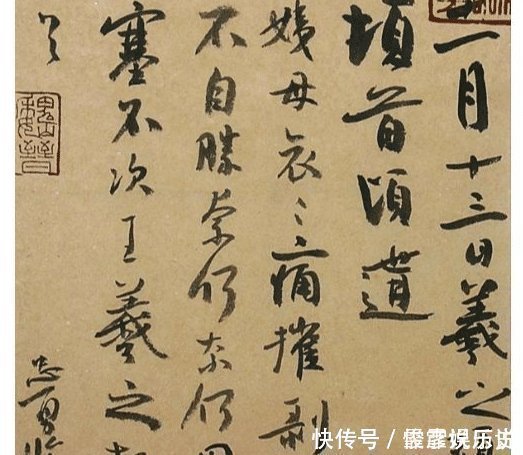 一月十三日羲之
頓首頃遘
姨母哀〻痛摧剝
不自勝奈何奈何
塞不次王羲之
快传号 /